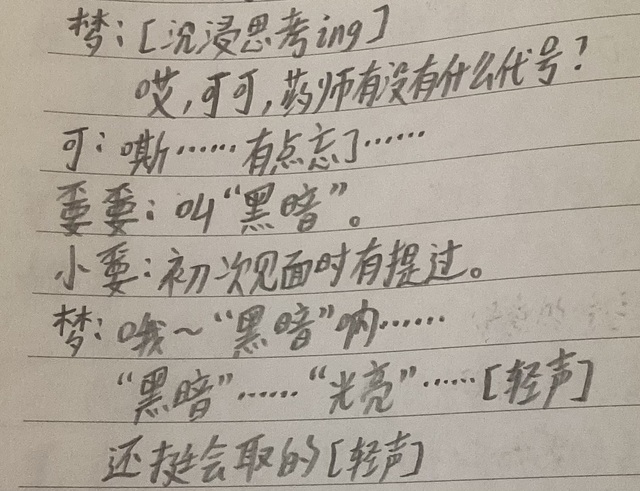 梦：[沉浸思考ing]
哎，可可，药师有没有什么代号？
可：嘶……有点忘了……
嫑嫑：叫“黑暗”。
小嫑：初次见面时有提过。
梦：哦～“黑暗”呐……
“黑暗”……“光亮”……[轻声]
还挺会取的[轻声]